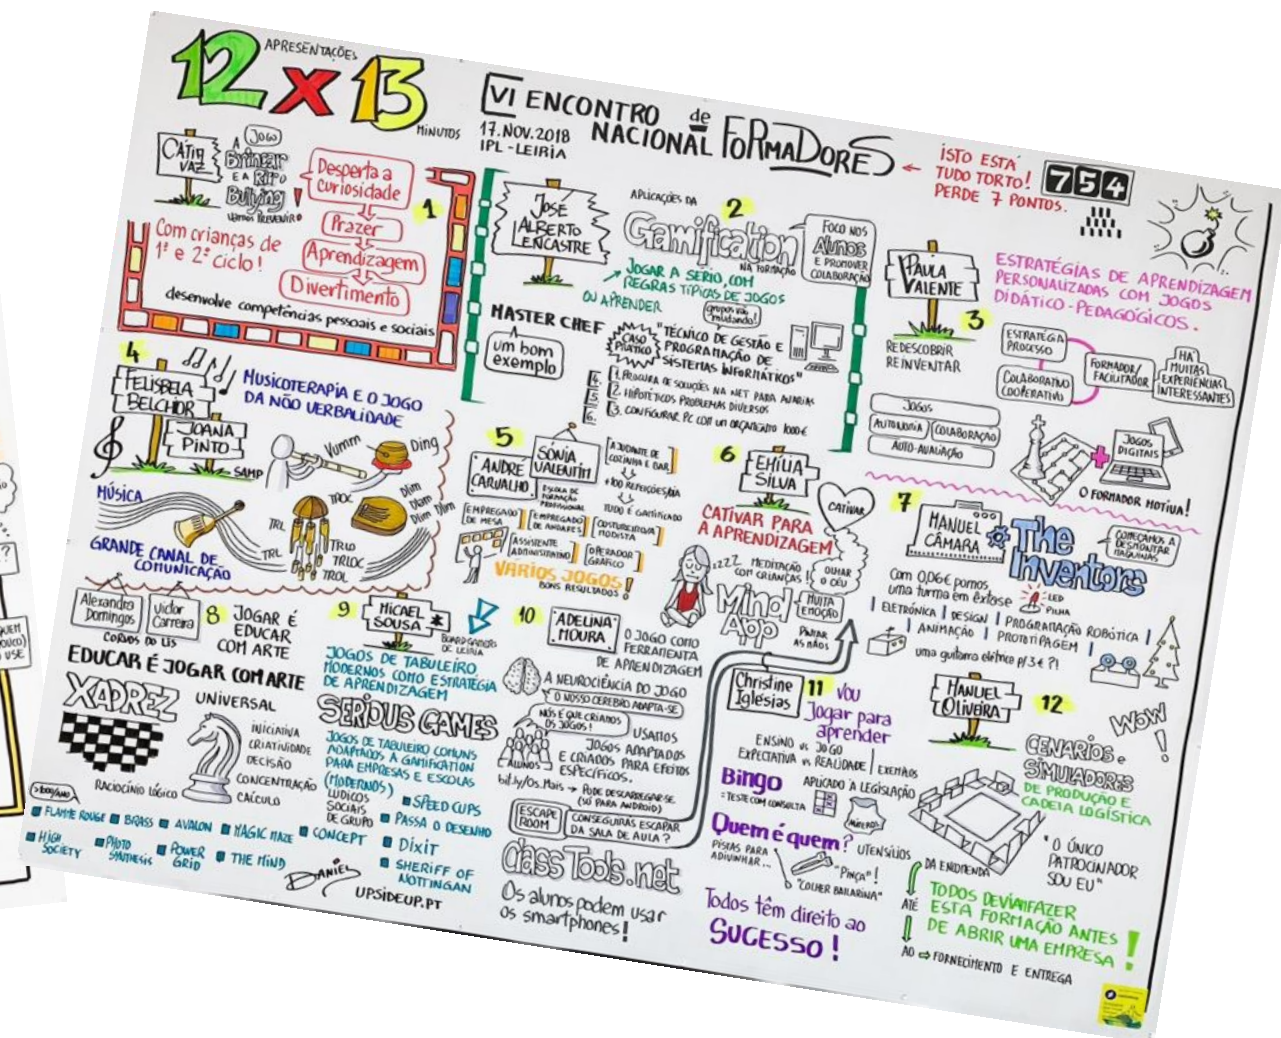 12 x 13
APRESENTAÇÕES
MINUTOS
VI ENCONTRO
NACIONAL
de
FORMADORES
17.NOV.2018
IPL-LEIRIA
ISTO ESTÁ
TUDO TORTO!
PERDE 7 PONTOS.
754
CÁTIA
VAZ
A
JOGO
Brincar
E A Rir o
Bullying
!
Vamos PREVENIR
Desperta a
curiosidade
Prazer
Aprendizagem
Divertimento
1
Com crianças de
1º e 2º ciclo!
desenvolve competências pessoais e sociais
JOSÉ
ALBERTO
LENCASTRE
APLICAÇÕES DA
2
Gamification
NA FORMAÇÃO
FOCO NOS
Alunos
E PROMOVER
COLABORAÇÃO
JOGAR A SÉRIO, COM
REGRAS TÍPICAS DE JOGOS
OU APRENDER
MASTER CHEF
um bom
exemplo
CASO
PRÁTICO
grupos vão
mudando!
"TÉCNICO DE GESTÃO E
PROGRAMAÇÃO DE
SISTEMAS INFORMÁTICOS"
1. PROCURA DE SOLUÇÕES NA NET PARA AVARIAS
2. HIPOTÉTICOS PROBLEMAS DIVERSOS
3. CONFIGURAR PC COM UM ORÇAMENTO 1000€
4.
5.
6.
PAULA
VALENTE
3
REDESCOBRIR
REINVENTAR
ESTRATÉGIAS DE APRENDIZAGEM
PERSONALIZADAS COM JOGOS
DIDÁTICO-PEDAGÓGICOS.
ESTRATÉGIA
PROCESSO
COLABORATIVO
COOPERATIVO
FORMADOR/
FACILITADOR
HÁ
MUITAS
EXPERIÊNCIAS
INTERESSANTES
JOGOS
AUTONOMIA
COLABORAÇÃO
AUTO-AVALIAÇÃO
+
JOGOS
DIGITAIS
O FORMADOR MOTIVA!
4
FELISBELA
BELCHIOR
JOANA
PINTO
SAMP
MUSICOTERAPIA E O JOGO
DA NÃO VERBALIDADE
Vumm
Ding
MÚSICA
TROC
TRL
TRL
TRLO
TRLOC
TROL
Dlim
Dlam
Dlim Dlim
GRANDE CANAL DE
COMUNICAÇÃO
5
ANDRÉ
CARVALHO
SÓNIA
VALENTIM
ESCOLA DE
FORMAÇÃO
PROFISSIONAL
AJUDANTE DE
COZINHA E BAR
+100 REFEIÇÕES/DIA
TUDO É GAMIFICADO
EMPREGADO
DE MESA
EMPREGADO
DE ANDARES
COSTUREIRO/A
MODISTA
ASSISTENTE
ADMINISTRATIVO
OPERADOR
GRÁFICO
VÁRIOS JOGOS!
BONS RESULTADOS
6
EMÍLIA
SILVA
CATIVAR
CATIVAR PARA
A APRENDIZAGEM
zZZ
MEDITAÇÃO
COM CRIANÇAS!!
OLHAR
O CÉU
Mind
App
MUITA
EMOÇÃO
PINTAR
AS MÃOS
7
MANUEL
CÂMARA
The
Inventors
COMEÇAMOS A
DESMONTAR
MÁQUINAS
Com 0,06€ pomos
uma turma em êxtase
LED
PILHA
ELETRÓNICA | DESIGN | PROGRAMAÇÃO ROBÓTICA
ANIMAÇÃO | PROTOTIPAGEM
uma guitarra elétrica p/ 3€ ?!
Alexandra
Domingos
Victor
Carreira
CORVOS DO LIS
8
JOGAR É
EDUCAR
COM ARTE
EDUCAR É JOGAR COM ARTE
XADREZ
UNIVERSAL
INICIATIVA
CRIATIVIDADE
DECISÃO
CONCENTRAÇÃO
CÁLCULO
RACIOCÍNIO LÓGICO
9
MICAEL
SOUSA
*
BOARDGAMERS
DE LEIRIA
JOGOS DE TABULEIRO
MODERNOS COMO ESTRATÉGIA
DE APRENDIZAGEM
SERIOUS GAMES
JOGOS DE TABULEIRO COMUNS
ADAPTADOS À GAMIFICATION
PARA EMPRESAS E ESCOLAS
(MODERNOS)
LÚDICOS
SOCIAIS
DE GRUPO
SPEED CUPS
PASSA O DESENHO
DIXIT
SHERIFF OF
NOTTINGAN
FLAMME ROUGE
BRASS
AVALON
MAGIC MAZE
CONCEPT
HIGH
SOCIETY
PHOTO
SYNTHESIS
POWER
GRID
THE MIND
DANIEL
UPSIDEUP.PT
10
ADELINA
MOURA
O JOGO COMO
FERRAMENTA
DE APRENDIZAGEM
A NEUROCIÊNCIA DO JOGO
O NOSSO CÉREBRO ADAPTA-SE
NÓS É QUE CRIAMOS
OS JOGOS!
ALUNOS
USAMOS
JOGOS ADAPTADOS
E CRIADOS PARA EFEITOS
ESPECÍFICOS.
bit.ly/Os_Mais → PODE DESCARREGAR-SE
(SÓ PARA ANDROID)
ESCAPE
ROOM
CONSEGUIRÁS ESCAPAR
DA SALA DE AULA?
ClassTools.net
Os alunos podem usar
os smartphones!
Christine
Iglésias
11
VOU
Jogar para
aprender
ENSINO vs JOGO
EXPECTATIVA vs REALIDADE
EXEMPLOS
Bingo
APLICADO À LEGISLAÇÃO
=TESTE COM CONSULTA
Quem é quem?
UTENSÍLIOS
PISTAS PARA
ADIVINHAR...
"PINÇA"!
"COLHER BAILARINA"
Todos têm direito ao
SUCESSO!
MANUEL
OLIVEIRA
12
WOW!
CENÁRIOS e
SIMULADORES
DE PRODUÇÃO E
CADEIA LOGÍSTICA
"O ÚNICO
PATROCINADOR
SOU EU"
DA ENCOMENDA
ATÉ
AO ⇒ FORNECIMENTO E ENTREGA
TODOS DEVIAM FAZER
ESTA FORMAÇÃO ANTES
DE ABRIR UMA EMPRESA!